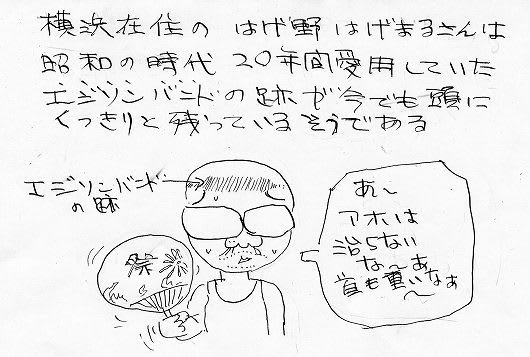 横浜在住の はげ野 はげまるさんは
昭和の時代 20年間愛用していた
エジソンバンドの跡が今でも頭に
くっきりと残っているそうである
エジソンバンド
の跡
祭
あ〜
アホは
治らない
な〜あ
首も重いなぁ
〜